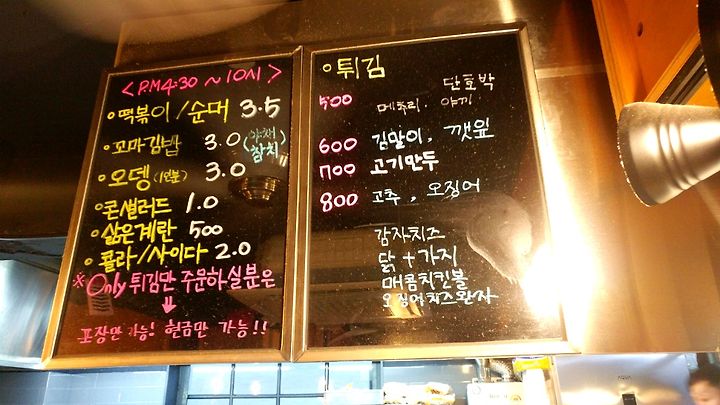 < P.M 4:30 ~ 10시 >
떡볶이 / 순대 3.5
꼬마김밥 3.0 (야채 참치)
오뎅 (1인분) 3.0
콘샐러드 1.0
삶은계란 500
콜라 / 사이다 2.0
※ Only 튀김만 주문하실분은
↓
포장만 가능! 현금만 가능!!
튀김
단호박
500 메추리, 야끼
600 김말이, 깻잎
700 고기만두
800 고추, 오징어
감자치즈
닭 + 가지
매콤치킨볼
오징어치즈완자